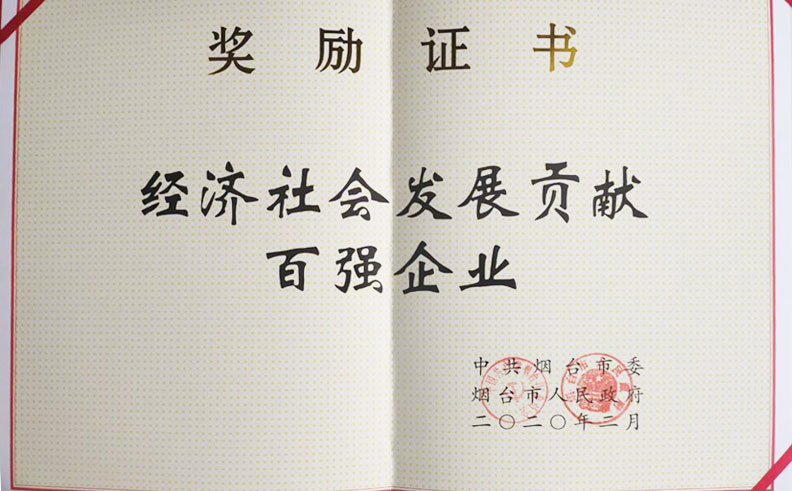 奖励证书
经济社会发展贡献
百强企业
中共烟台市委
烟台市人民政府
二〇二〇年二月